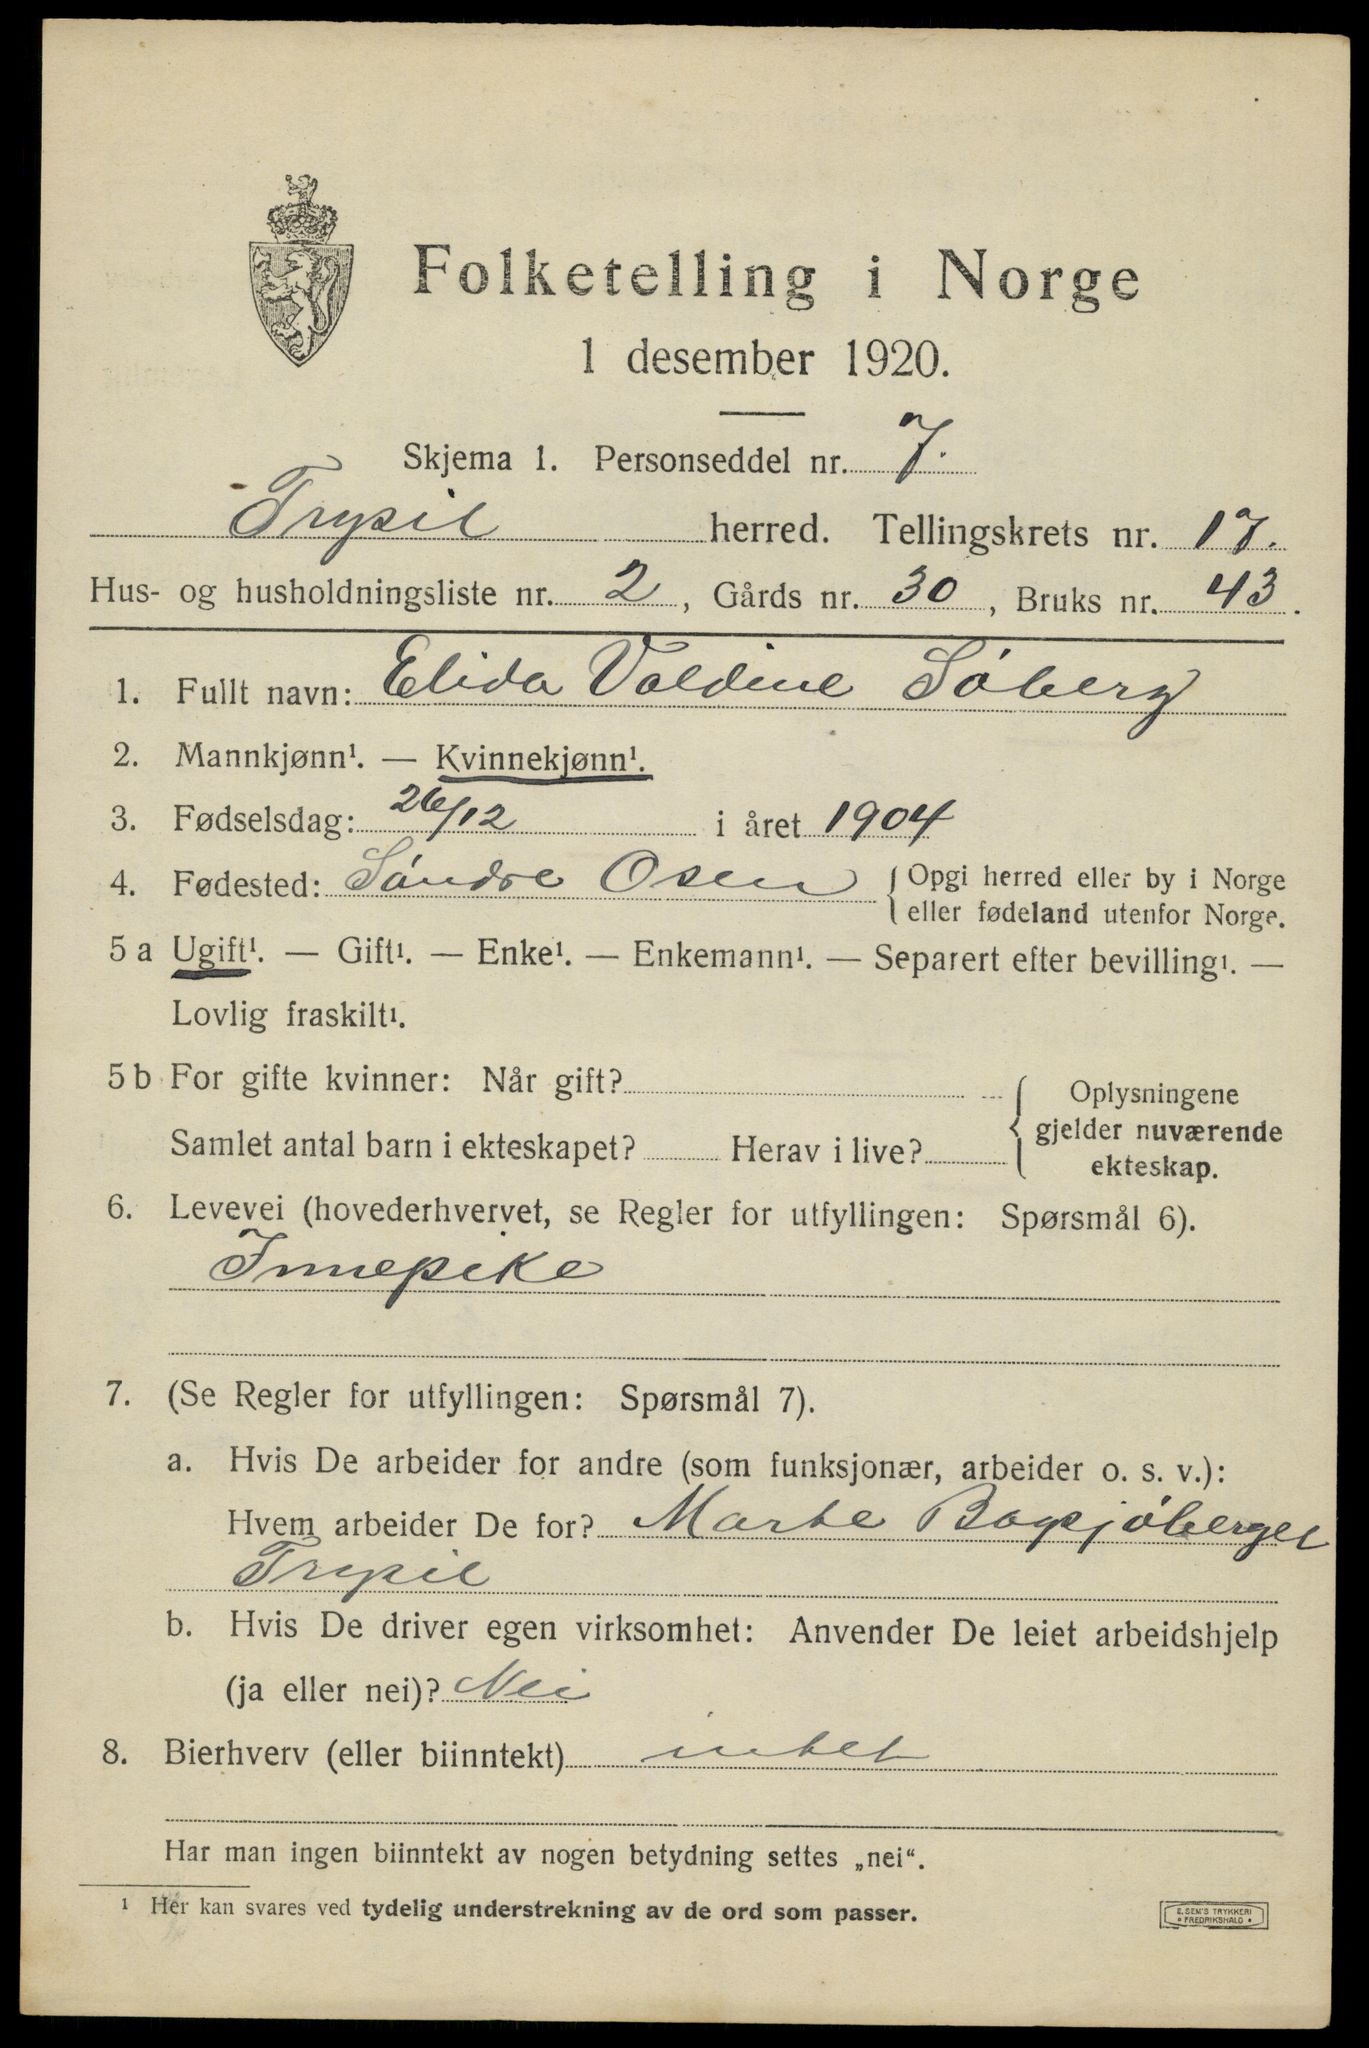 Folketelling i Norge
1 desember 1920.
Skjema 1. Personseddel nr. 7.
Trysil herred. Tellingskrets nr. 17.
Hus- og husholdningsliste nr. 2, Gårds nr. 30, Bruks nr. 43.
1. Fullt navn: Elida Valdine Søberg
2. Mannkjønn¹. — Kvinnekjønn¹.
3. Fødselsdag: 26/12 i året 1904
4. Fødested: Søndre Osen { Opgi herred eller by i Norge
eller fødeland utenfor Norge.
5 a Ugift¹. — Gift¹. — Enke¹. — Enkemann¹. — Separert efter bevilling¹. —
Lovlig fraskilt¹.
5 b For gifte kvinner: Når gift? { Oplysningene
gjelder nuværende
Samlet antal barn i ekteskapet? Herav i live?
ekteskap.
6. Levevei (hovederhvervet, se Regler for utfyllingen: Spørsmål 6).
Innepike
7. (Se Regler for utfyllingen: Spørsmål 7).
a. Hvis De arbeider for andre (som funksjonær, arbeider o. s. v.):
Hvem arbeider De for? Marte Bagsjøberget
Trysil
b. Hvis De driver egen virksomhet: Anvender De leiet arbeidshjelp
(ja eller nei)? Nei
8. Bierhverv (eller biinntekt) intet
Har man ingen biinntekt av nogen betydning settes „nei“.
¹ Her kan svares ved tydelig understrekning av de ord som passer.
E. SEM'S TRYKKERI
• FREDRIKSHALD •